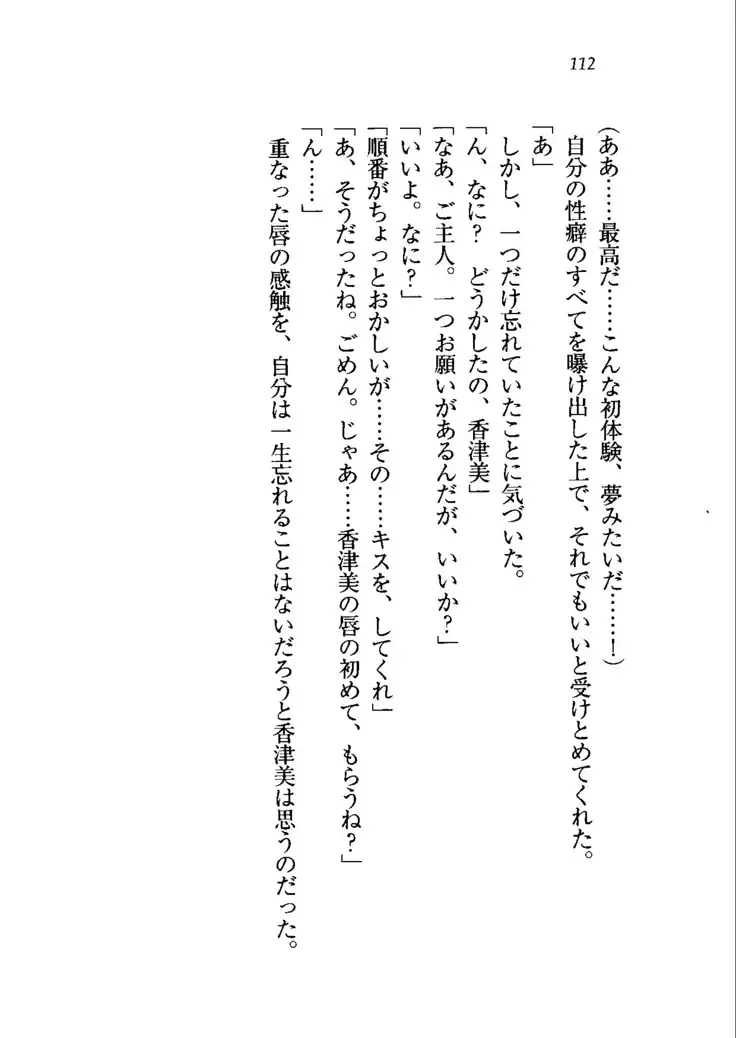 112
(ああ……最高だ……こんな初体験、夢みたいだ……！)
自分の性癖のすべてを曝け出した上で、それでもいいと受けとめてくれた。
「あ」
しかし、一つだけ忘れていたことに気づいた。
「ん、なに？　どうかしたの、香津美」
「なあ、ご主人。一つお願いがあるんだが、いいか？」
「いいよ。なに？」
「順番がちょっとおかしいが……その……キスを、してくれ」
「あ、そうだったね。ごめん。じゃあ……香津美の唇の初めて、もらうね？」
「ん……」
重なった唇の感触を、自分は一生忘れることはないだろうと香津美は思うのだった。